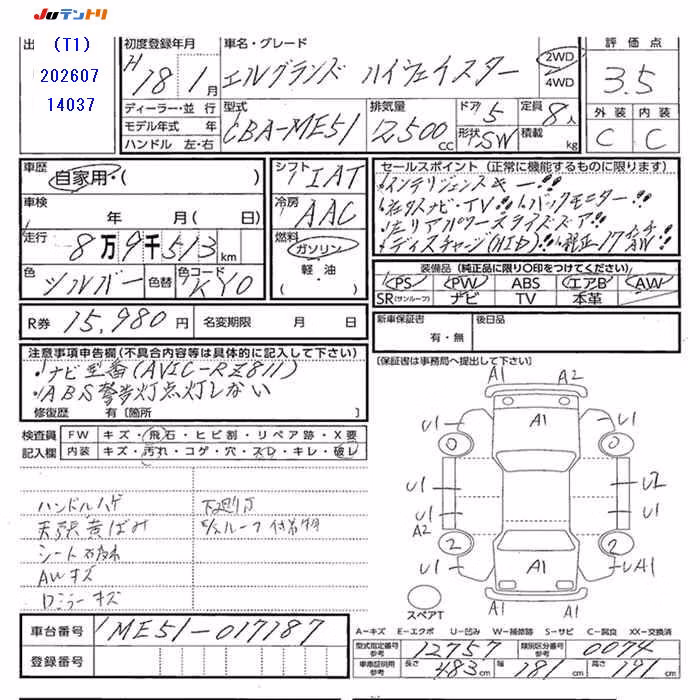 JUテントリ
出
(T1)
202607
14037
初度登録年月
H18年1月
車名・グレード
エルグランド ハイウェイスター
2WD
4WD
評価点
3.5
ディーラー・並行
モデル年式 年
ハンドル 左・右
型式
CBA-ME51
排気量
2,500cc
ドア 5
形状 SW
定員 8人
積載 kg
外装 内装
C C
車歴
自家用・( )
シフト IAT
セールスポイント (正常に機能するものに限ります)
・インテリジェンスキー!!
・社外ナビ・TV!! ・バックモニター!!
・左リアパワースライドドア!!
・ディスチャージ(HID)!! ・純正17インチAW!!
車検
年 月( 日)
冷房 AAC
走行
8万9千513km
燃料
ガソリン
軽油
( )
色 シルバー
色替
色コード KY0
装備品 (純正品に限り○印をつけてください)
PS PW ABS エアB AW
SR(サンルーフ) ナビ TV 本革
R券 15,980円 名変期限 月 日
新車保証書
有・無
後日品
注意事項申告欄(不具合内容等は具体的に記入して下さい)
・ナビ型番(AVIC-RZ811)
・ABS警告灯点灯しない
修復歴 有〔箇所 〕
〔保証書は事務局へ提出して下さい〕
検査員
記入欄
FW キズ・飛石・ヒビ割・リペア跡・X要
内装 キズ・汚れ・コゲ・穴・スレ・キレ・破レ
ハンドルハゲ
天張黄ばみ
シート
AWキズ
ロミラーキズ
下廻りサ
ルーフ付着物
A1 A2
A1
U1 U1
0 0
U1 U2
U1 U1
A2
2 2
A1
U1 UA1
A1
スペアT
車台番号 ME51-017187
登録番号
A-キズ E-エクボ U-凹み W-補修跡 S-サビ C-腐食 XX-交換済
型式指定番号 参考 12757 類別区分番号 参考 0074
車庫証明用 参考 長さ 483cm 幅 181cm 高さ 191cm